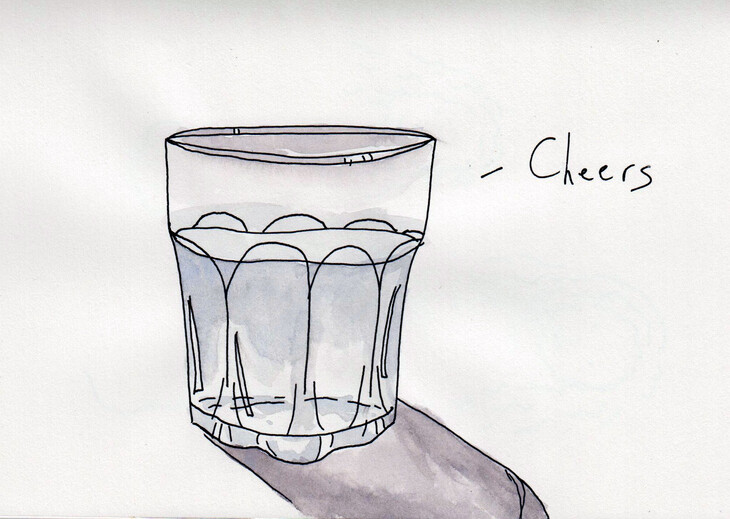 - Cheers